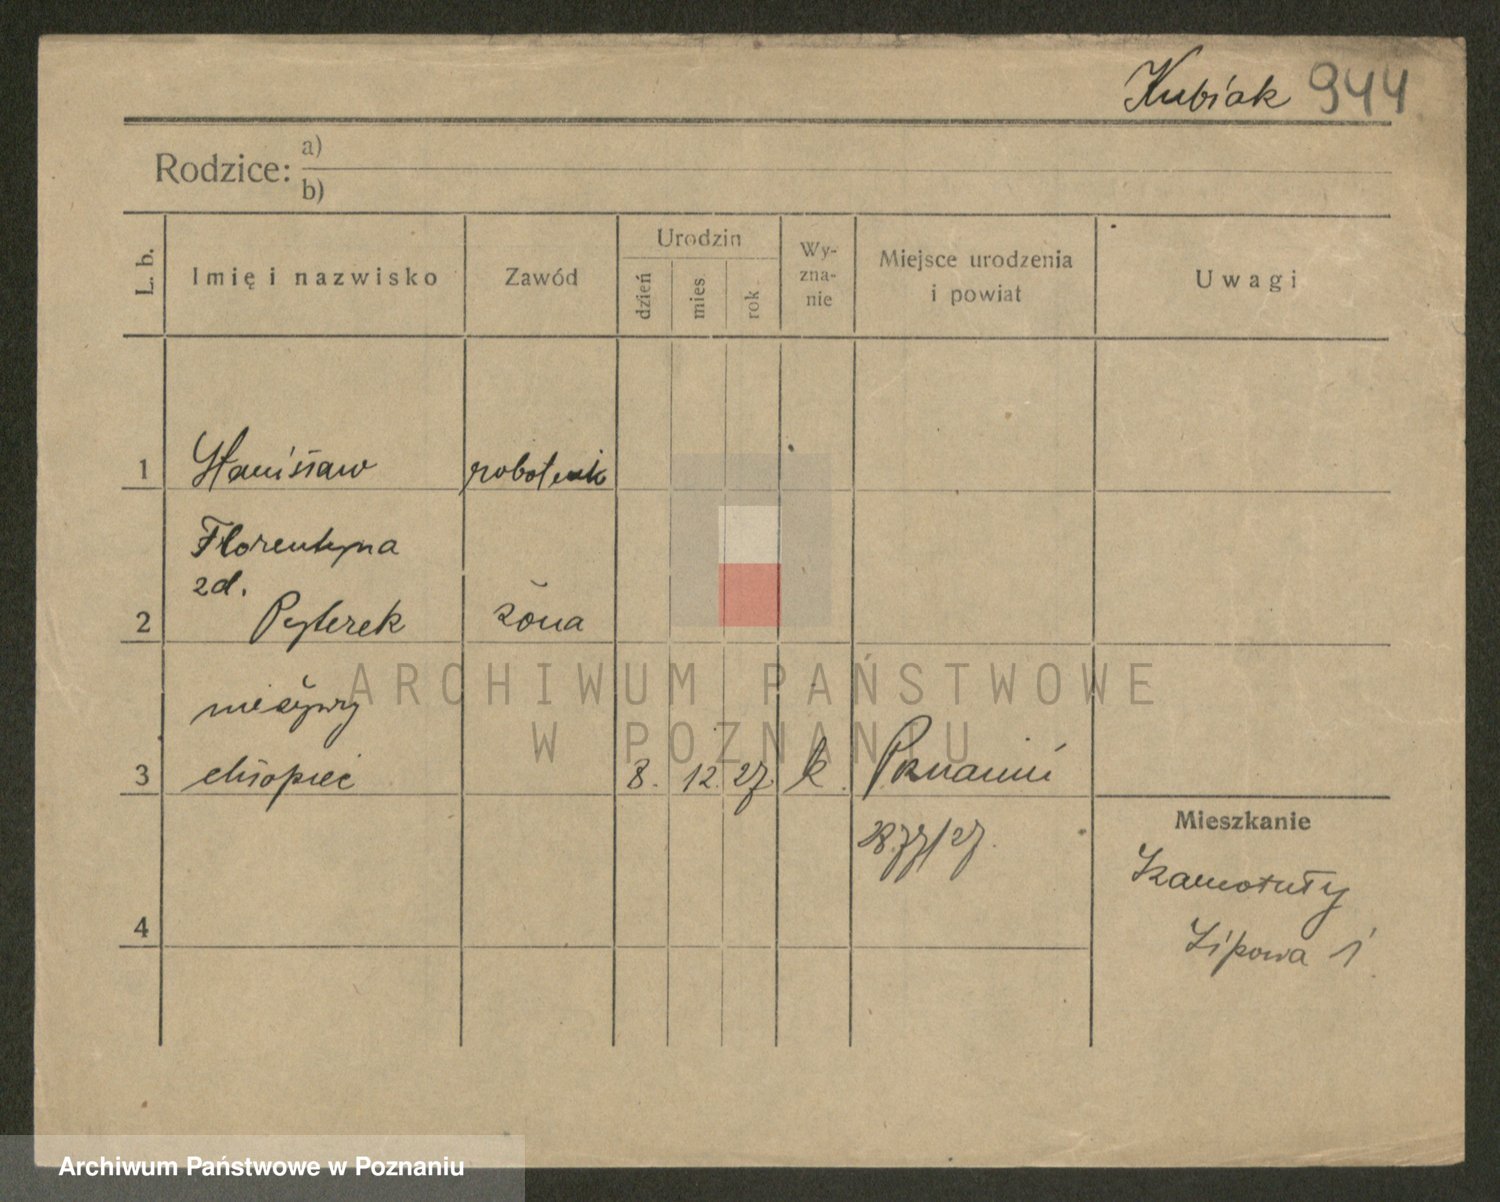 Kubiak 944
Rodzice: a)
b)
L. b.
Imię i nazwisko
Zawód
Urodzin
dzień
mies.
rok
Wy-
zna-
nie
Miejsce urodzenia
i powiat
Uwagi
1 Stanisław robotnik
Florentyna
zd.
2 Pyterek żona
nieżywy
3 chłopiec 8. 12. 27 k. Poznaniu
Mieszkanie
Szamotuły
4
Lipowa 1
ARCHIWUM PAŃSTWOWE
W POZNANIU
Archiwum Państwowe w Poznaniu